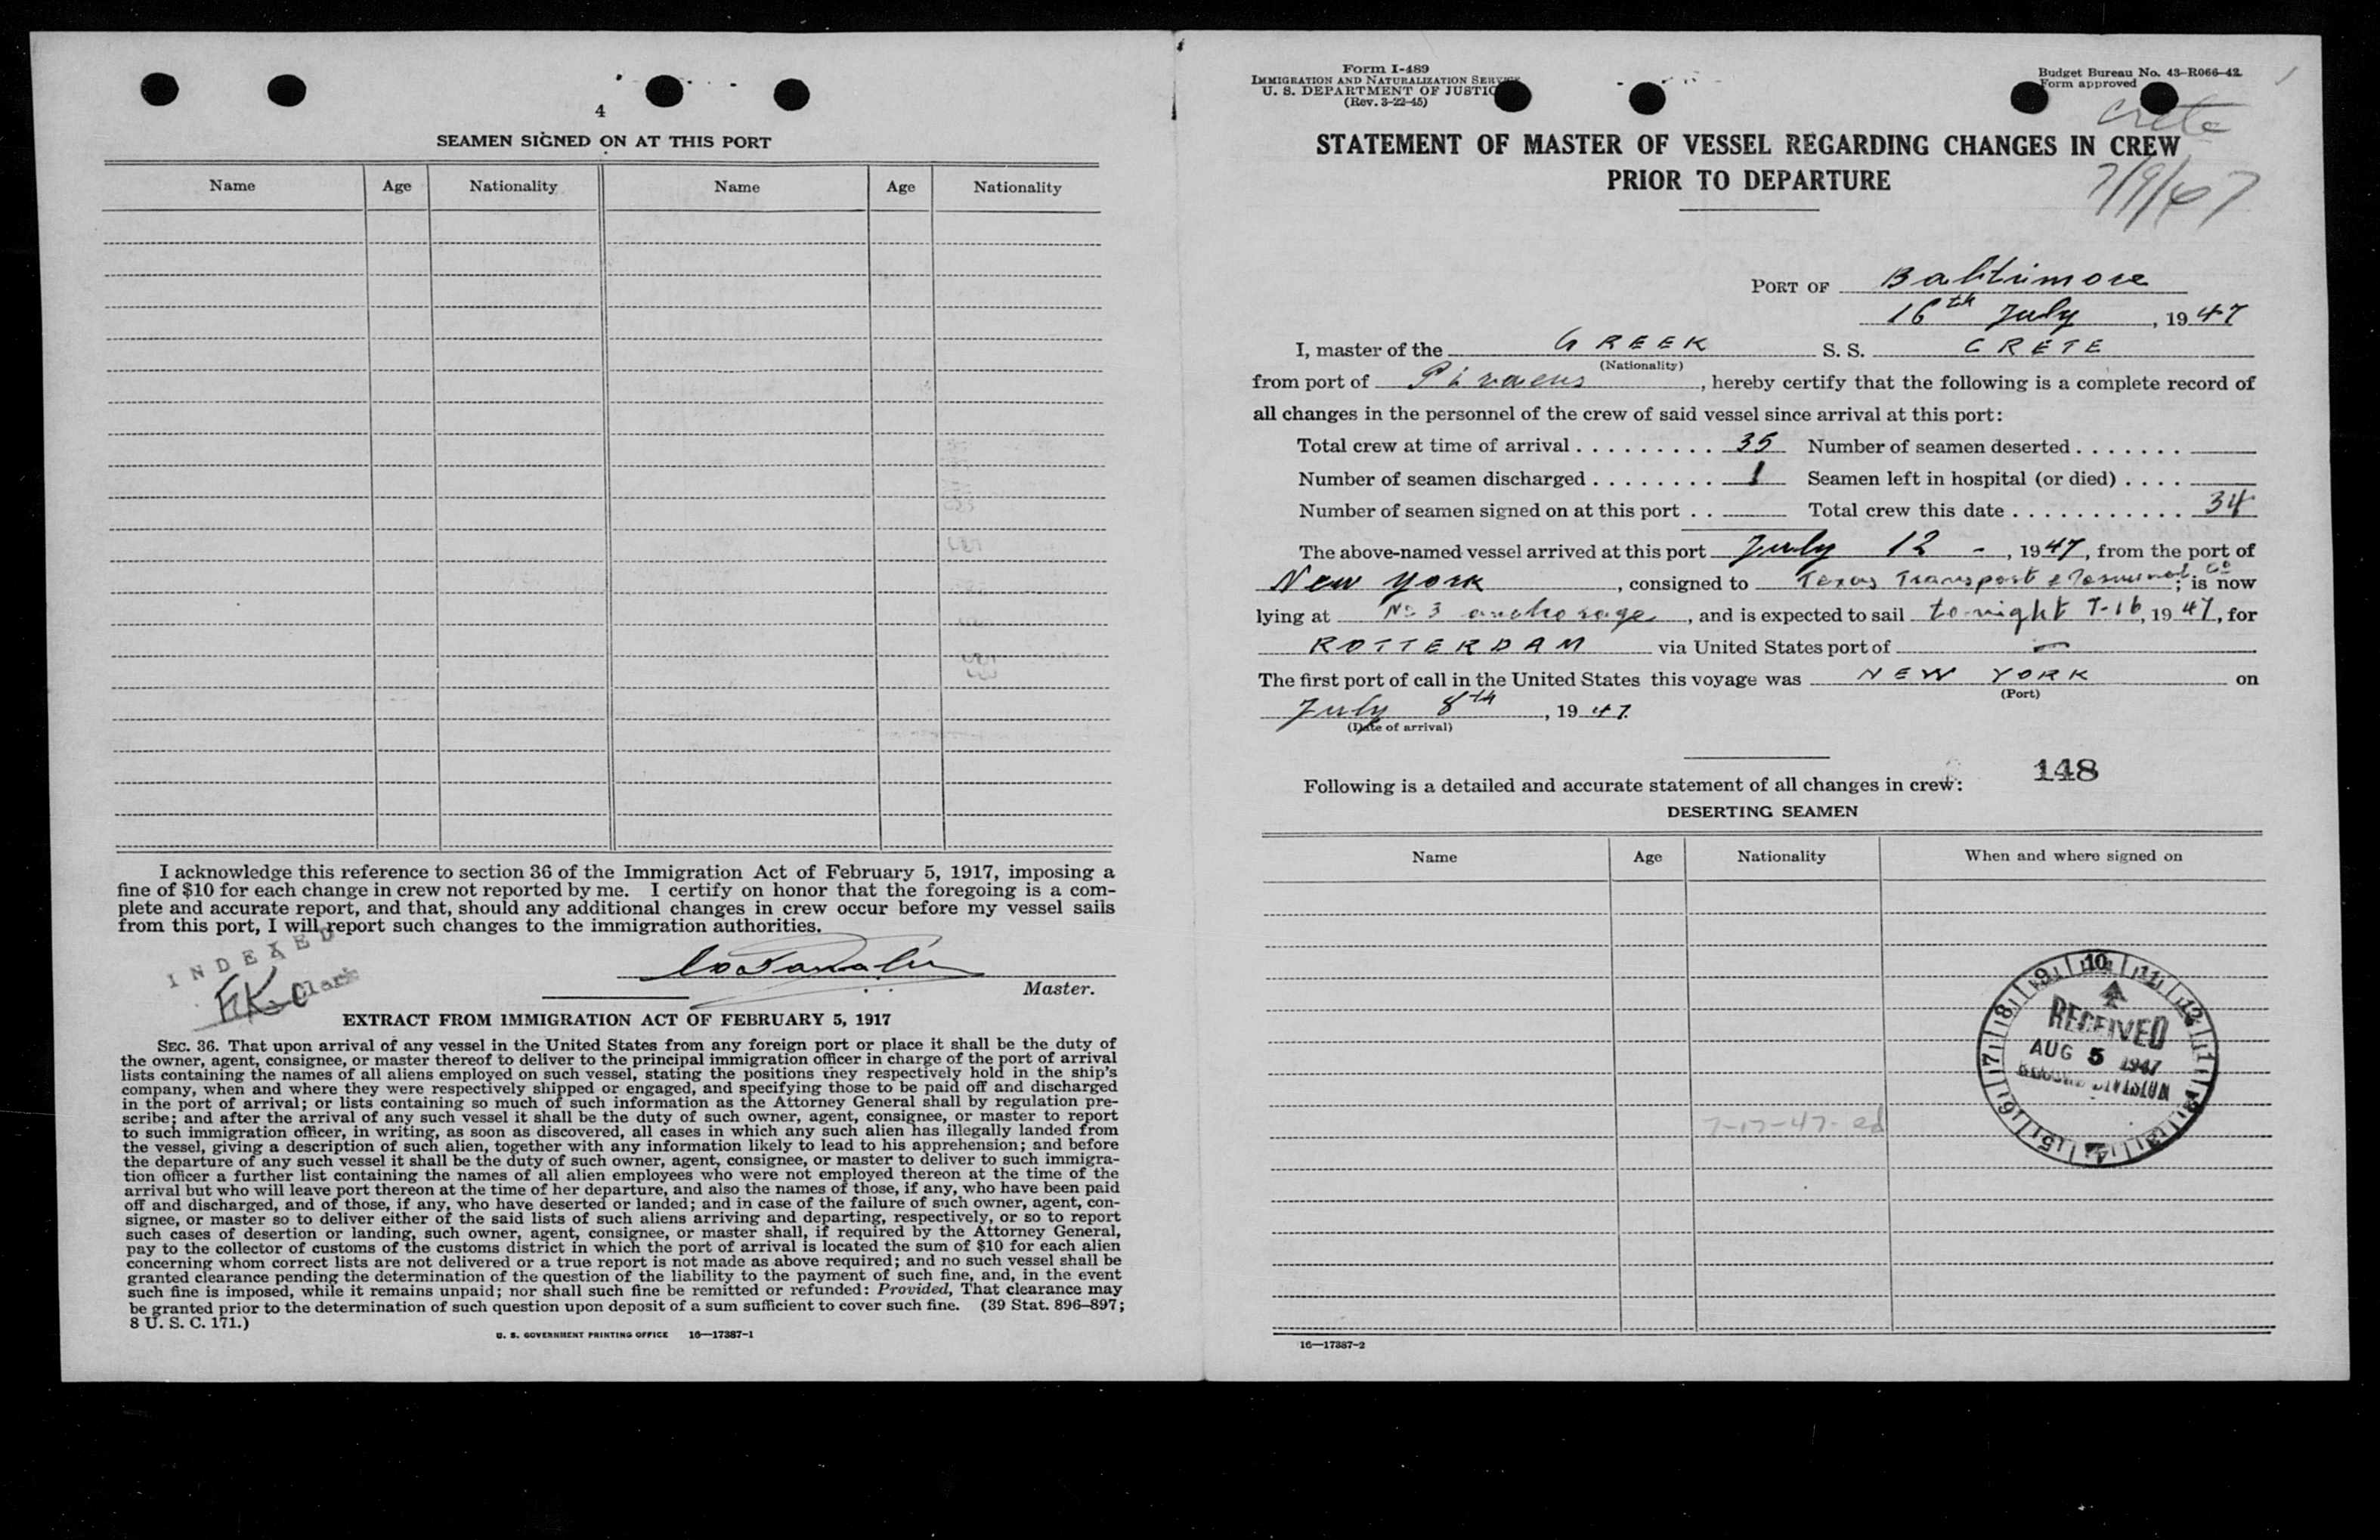 4
SEAMEN SIGNED ON AT THIS PORT
Name Age Nationality Name Age Nationality
I acknowledge this reference to section 36 of the Immigration Act of February 5, 1917, imposing a
fine of $10 for each change in crew not reported by me. I certify on honor that the foregoing is a com-
plete and accurate report, and that, should any additional changes in crew occur before my vessel sails
from this port, I will report such changes to the immigration authorities.
INDEXED
Clark
Master.
EXTRACT FROM IMMIGRATION ACT OF FEBRUARY 5, 1917
SEC. 36. That upon arrival of any vessel in the United States from any foreign port or place it shall be the duty of
the owner, agent, consignee, or master thereof to deliver to the principal immigration officer in charge of the port of arrival
lists containing the names of all aliens employed on such vessel, stating the positions they respectively hold in the ship's
company, when and where they were respectively shipped or engaged, and specifying those to be paid off and discharged
in the port of arrival; or lists containing so much of such information as the Attorney General shall by regulation pre-
scribe; and after the arrival of any such vessel it shall be the duty of such owner, agent, consignee, or master to report
to such immigration officer, in writing, as soon as discovered, all cases in which any such alien has illegally landed from
the vessel, giving a description of such alien, together with any information likely to lead to his apprehension; and before
the departure of any such vessel it shall be the duty of such owner, agent, consignee, or master to deliver to such immigra-
tion officer a further list containing the names of all alien employees who were not employed thereon at the time of the
arrival but who will leave port thereon at the time of her departure, and also the names of those, if any, who have been paid
off and discharged, and of those, if any, who have deserted or landed; and in case of the failure of such owner, agent, con-
signee, or master so to deliver either of the said lists of such aliens arriving and departing, respectively, or so to report
such cases of desertion or landing, such owner, agent, consignee, or master shall, if required by the Attorney General,
pay to the collector of customs of the customs district in which the port of arrival is located the sum of $10 for each alien
concerning whom correct lists are not delivered or a true report is not made as above required; and no such vessel shall be
granted clearance pending the determination of the question of the liability to the payment of such fine, and, in the event
such fine is imposed, while it remains unpaid; nor shall such fine be remitted or refunded: Provided, That clearance may
be granted prior to the determination of such question upon deposit of a sum sufficient to cover such fine. (39 Stat. 896–897;
8 U. S. C. 171.)
U. S. GOVERNMENT PRINTING OFFICE 16—17387-1
Form I-489
IMMIGRATION AND NATURALIZATION SERVICE
U. S. DEPARTMENT OF JUSTICE
(Rev. 3-22-45)
Budget Bureau No. 43-R066-42.
Form approved
Crete
7/9/47
STATEMENT OF MASTER OF VESSEL REGARDING CHANGES IN CREW
PRIOR TO DEPARTURE
PORT OF Baltimore
16th July, 1947
I, master of the GREEK S. S. CRETE
(Nationality)
from port of Piraeus, hereby certify that the following is a complete record of
all changes in the personnel of the crew of said vessel since arrival at this port:
Total crew at time of arrival . . . . . . . . . 35 Number of seamen deserted . . . . . . .
Number of seamen discharged . . . . . . . . 1 Seamen left in hospital (or died) . . . .
Number of seamen signed on at this port . . Total crew this date . . . . . . . . . . . 34
The above-named vessel arrived at this port July 12 -, 1947, from the port of
New York, consigned to Texas Transport & Terminal Co; is now
lying at No 3 anchorage, and is expected to sail to-night 7-16, 1947, for
ROTTERDAM via United States port of —
The first port of call in the United States this voyage was NEW YORK on
(Port)
July 8th, 1947.
(Date of arrival)
148
Following is a detailed and accurate statement of all changes in crew:
DESERTING SEAMEN
Name Age Nationality When and where signed on
9 10 11 12 1 2 3 4 5 6 7 8
RECEIVED
AUG 5 1947
RECORD DIVISION
7-17-47-ed
16—17387-2